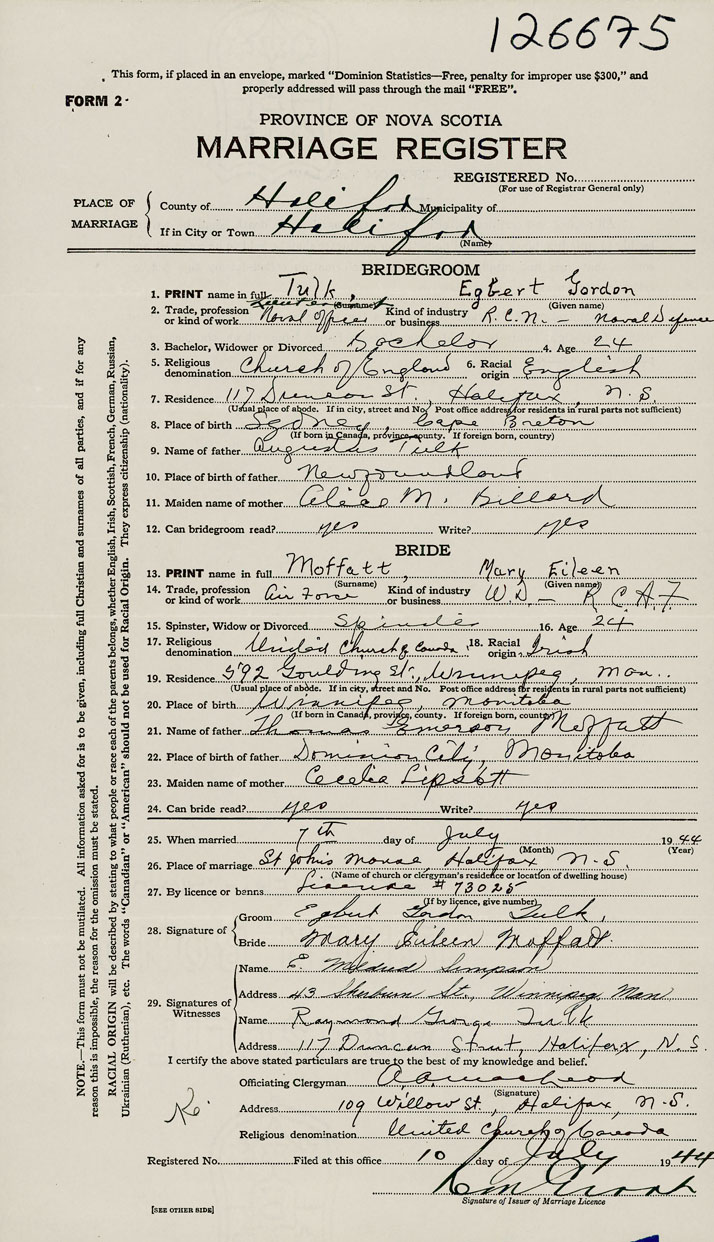 126675
This form, if placed in an envelope, marked "Dominion Statistics—Free, penalty for improper use $300," and
properly addressed will pass through the mail "FREE".
FORM 2
PROVINCE OF NOVA SCOTIA
MARRIAGE REGISTER
REGISTERED No.
(For use of Registrar General only)
PLACE OF MARRIAGE
County of Halifax Municipality of
If in City or Town Halifax
(Name)
BRIDEGROOM
1. PRINT name in full Tulk, Egbert Gordon
(Surname) (Given name)
2. Trade, profession or kind of work Lieutenant Naval Officer Kind of industry or business R.C.N. — Naval Defence
3. Bachelor, Widower or Divorced Bachelor 4. Age 24
5. Religious denomination Church of England 6. Racial origin English
7. Residence 117 Duncan St. Halifax, N.S.
(Usual place of abode. If in city, street and No. Post office address for residents in rural parts not sufficient)
8. Place of birth Sydney, Cape Breton
(If born in Canada, province, county. If foreign born, country)
9. Name of father Augustus Tulk
10. Place of birth of father Newfoundland
11. Maiden name of mother Alice M. Billard
12. Can bridegroom read? yes Write? yes
BRIDE
13. PRINT name in full Moffatt, Mary Eileen
(Surname) (Given name)
14. Trade, profession or kind of work Air Force Kind of industry or business W.D. — R.C.A.F.
15. Spinster, Widow or Divorced Spinster 16. Age 24
17. Religious denomination United Church of Canada 18. Racial origin Irish
19. Residence 592 Goulding St., Winnipeg, Man.
(Usual place of abode. If in city, street and No. Post office address for residents in rural parts not sufficient)
20. Place of birth Winnipeg, Manitoba
(If born in Canada, province, county. If foreign born, country)
21. Name of father Thomas Emerson Moffatt
22. Place of birth of father Dominion City, Manitoba
23. Maiden name of mother Cecelia Lipsett
24. Can bride read? yes Write? yes
25. When married 7th day of July 1944
(Month) (Year)
26. Place of marriage St John's Manse, Halifax N.S.
(Name of church or clergyman's residence or location of dwelling house)
27. By licence or banns License # 73025
(If by licence, give number)
28. Signature of
Groom Egbert Gordon Tulk,
Bride Mary Eileen Moffatt
29. Signatures of Witnesses
Name E. Mildred Simpson
Address 43 Sherburn St., Winnipeg Man
Name Raymond George Tulk
Address 117 Duncan Street, Halifax, N.S.
I certify the above stated particulars are true to the best of my knowledge and belief.
Officiating Clergyman
(Signature)
Address 109 Willow St., Halifax, N.S.
Religious denomination United Church of Canada
Registered No. Filed at this office 10 day of July 1944
Signature of Issuer of Marriage Licence
[SEE OTHER SIDE]
NOTE.—This form must not be mutilated. All information asked for is to be given, including full Christian and surnames of all parties, and if for any
reason this is impossible, the reason for the omission must be stated.
RACIAL ORIGIN will be described by stating to what people or race each of the parents belongs, whether English, Irish, Scottish, French, German, Russian,
Ukrainian (Ruthenian), etc. The words "Canadian" or "American" should not be used for Racial Origin. They express citizenship (nationality).